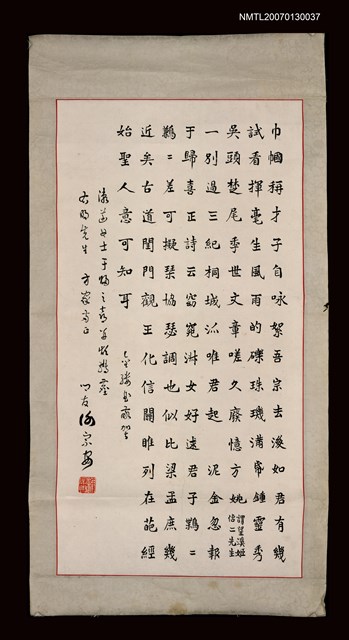 NMTL20070130037
巾幗稱才子自咏絮吾宗去後如君有幾
試看揮毫生風雨的礫珠璣滿帋鍾靈秀
吳頭楚尾季世文章嗟久廢憶方姚謂望溪姬傳二先生
一別過三紀桐城派唯君起 泥金忽報
于歸喜正詩云窈窕淑女好逑君子鶼二
鶼二差可擬琹協瑟調也似比梁孟庶幾
近矣古道閨門觀王化信關雎列在葩經
始聖人意可知耳
女士于歸之喜
右明先生 方家斧正